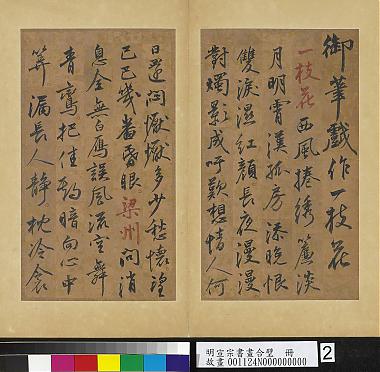 御筆戲作一枝花
一枝花 西風捲綉簾淡
月明霄漢孤房添晚恨
雙淚濕紅顏長夜漫漫
對燭影成吁歎想情人何
日還悶懨懨多少愁懷望
巴巴幾番昏眼梁州問消
息全無白雁誤風流空舞
青鸞把佳期暗向心中
筭漏長人靜枕冷衾
明宣宗書畫合璧 冊
故畫 001124N000000000
2